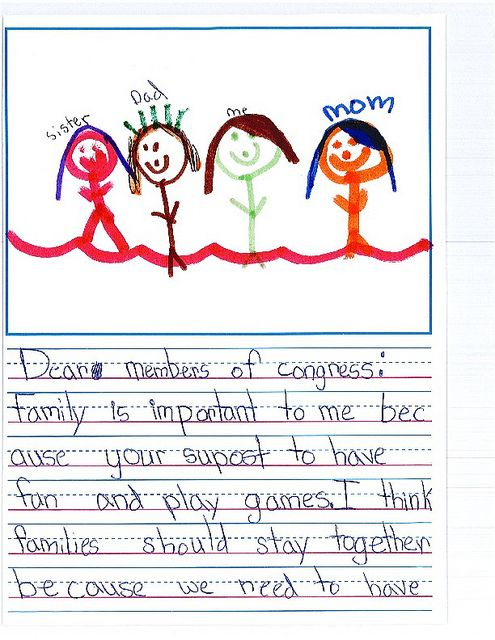 sister
Dad
me
mom
Dear members of congress:
Family is important to me bec
ause your supost to have
fun and play games. I think
families should stay together
because we need to have